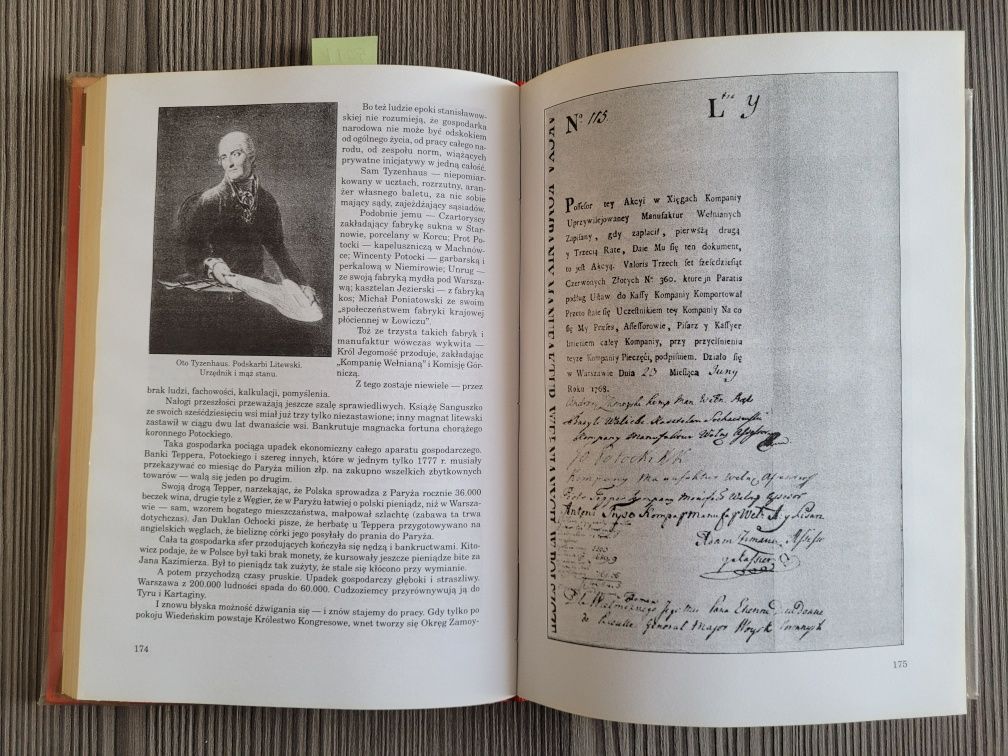 Bo też ludzie epoki stanisławow-
skiej nie rozumieją, że gospodarka
narodowa nie może być odskokiem
od ogólnego życia, od pracy całego na-
rodu, od zespołu norm, wiążących
prywatne inicjatywy w jedną całość.
Sam Tyzenhaus — niepomiar-
kowany w ucztach, rozrzutny, aran-
żer własnego baletu, za nic sobie
mający sądy, zajeżdżający sąsiadów.
Podobnie jemu — Czartoryscy
zakładający fabrykę sukna w Star-
nowie, porcelany w Korcu; Prot Po-
tocki — kapeluszniczą w Machnów-
ce; Wincenty Potocki — garbarską i
perkalową w Niemirowie; Unrug —
ze swoją fabryką mydła pod Warsza-
wą; kasztelan Jezierski — z fabryką
kos; Michał Poniatowski ze swoim
„społeczeństwem fabryki krajowej
płóciennej w Łowiczu".
Toż ze trzysta takich fabryk i
manufaktur wówczas wykwita —
Król Jegomość przoduje, zakładając
„Kompanię Wełnianą" i Komisję Gór-
niczą.
Z tego zostaje niewiele — przez
Oto Tyzenhaus. Podskarbi Litewski.
Urzędnik i mąż stanu.
brak ludzi, fachowości, kalkulacji, pomyślenia.
Nałogi przeszłości przeważają jeszcze szalę sprawiedliwych. Książę Sanguszko
ze swoich sześćdziesięciu wsi miał już trzy tylko niezastawione; inny magnat litewski
zastawił w ciągu dwu lat dwanaście wsi. Bankrutuje magnacka fortuna chorążego
koronnego Potockiego.
Taka gospodarka pociąga upadek ekonomiczny całego aparatu gospodarczego.
Banki Teppera, Potockiego i szereg innych, które w jednym tylko 1777 r. musiały
przekazywać co miesiąc do Paryża milion złp. na zakupno wszelkich zbytkownych
towarów — walą się jeden po drugim.
Swoją drogą Tepper, narzekając, że Polska sprowadza z Paryża rocznie 36.000
beczek wina, drugie tyle z Węgier, że w Paryżu łatwiej o polski pieniądz, niż w Warsza-
wie — sam, wzorem bogatego mieszczaństwa, małpował szlachtę (zabawa ta trwa
dotychczas). Jan Duklan Ochocki pisze, że herbatę u Teppera przygotowywano na
angielskich węglach, że bieliznę córki jego posyłały do prania do Paryża.
Cała ta gospodarka sfer przodujących kończyła się nędzą i bankructwami. Kito-
wicz podaje, że w Polsce był taki brak monety, że kursowały jeszcze pieniądze bite za
Jana Kazimierza. Był to pieniądz tak zużyty, że stale się kłócono przy wymianie.
A potem przychodzą czasy pruskie. Upadek gospodarczy głęboki i straszliwy.
Warszawa z 200.000 ludności spada do 60.000. Cudzoziemcy przyrównywują ją do
Tyru i Kartaginy.
I znowu błyska możność dźwigania się — i znów stajemy do pracy. Gdy tylko po
pokoju Wiedeńskim powstaje Królestwo Kongresowe, wnet tworzy się Okręg Zamoy-
174
No 113. Ltre y
Possesor tey Akcyi w Xięgach Kompaniy
Uprzywilejowaney Manufaktur Wełnianych
Zapisany, gdy zapłacił, pierwszą drugą
y Trzecią Ratę, Daie Mu się ten dokument,
to jest Akcyą. Valoris Trzech set sześćdziesiąt
Czerwonych Złotych No 360. ktore jn Paratis
podług Ustaw do Kassy Kompaniy Komportował
Przeto staie się Uczestnikiem tey Kompaniy Na co
się My Prezes, Assessorowie, Pisarz y Kassyer
Imieniem całey Kompaniy, przy przyciśnieniu
teyze Kompaniy Pieczęci, podpisałem. Działo się
w Warszawie Dnia 23 Miesiąca Juny
Roku 1768.
Potocki
Kompany Manufaktur
Piotr Tepper Kompany Manuf Wełny Assesor
General Major Woysk Koronnych
175